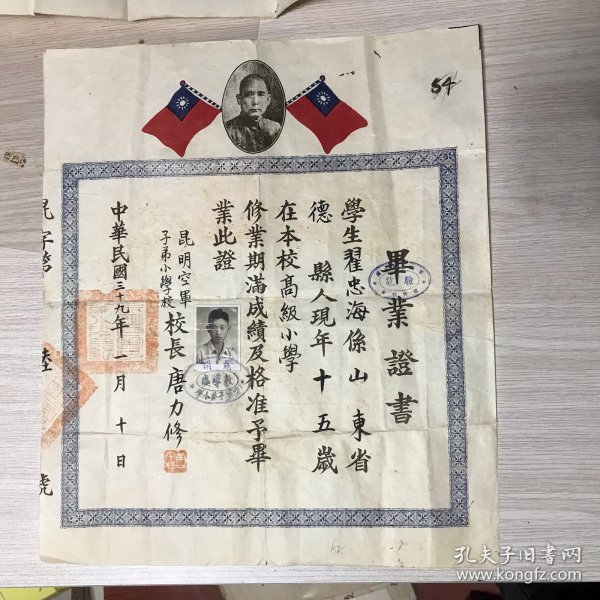 54
畢業證書
學生翟忠海係山東省
德縣人現年十五歲
在本校高級小學
修業期滿成績及格准予畢
業此證
昆明空軍
子弟小學校
校長唐力修
中華民國三十九年一月十日
陸
號
孔夫子旧书网
www.kongfz.com